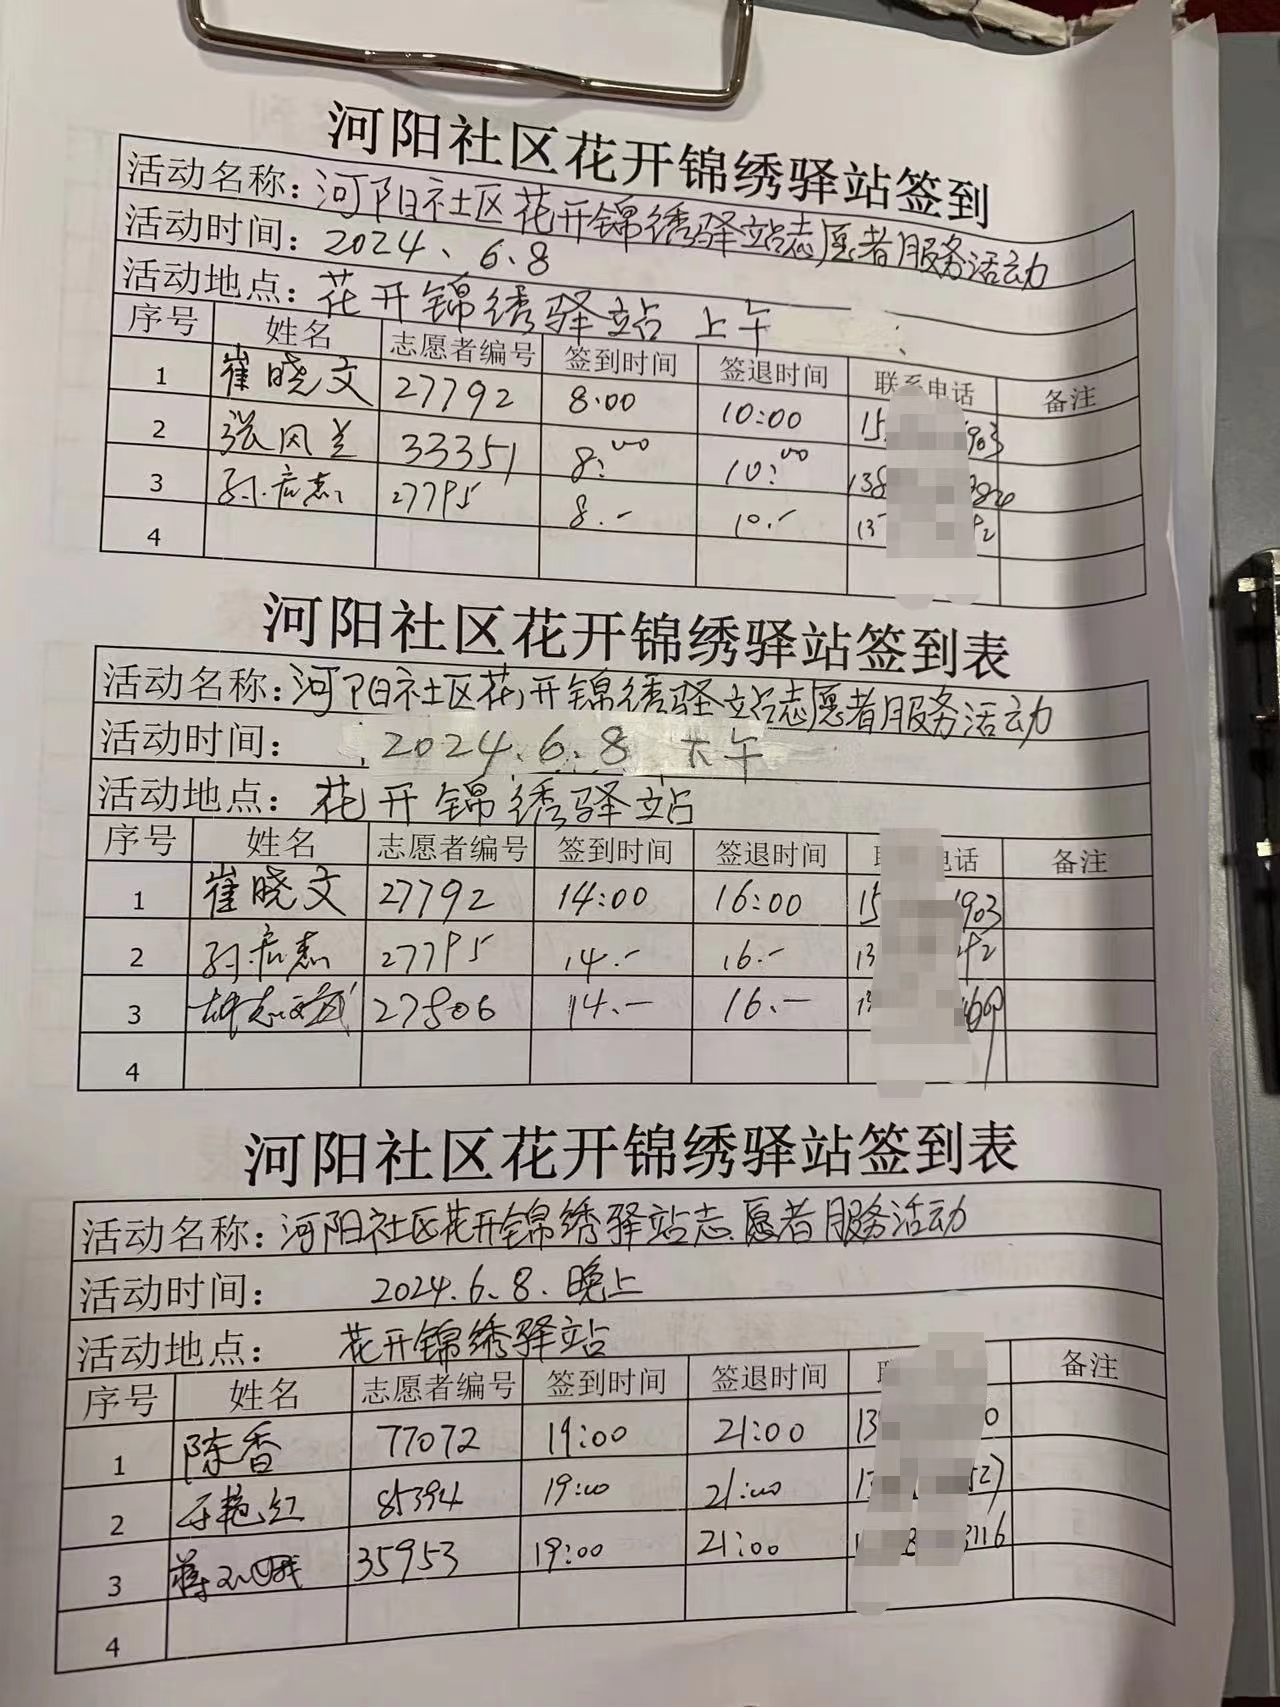 河阳社区花开锦绣驿站签到
活动名称：河阳社区花开锦绣驿站志愿者服务活动
活动时间：2024、6、8
活动地点：花开锦绣驿站 上午
序号 姓名 志愿者编号 签到时间 签退时间 联系电话 备注
1 崔晓文 27792 8:00 10:00 15 903
2 张风兰 33351 8:00 10:00 138
3 27795 8.- 10.- 13
4
河阳社区花开锦绣驿站签到表
活动名称：河阳社区花开锦绣驿站志愿者服务活动
活动时间：2024.6.8 下午
活动地点：花开锦绣驿站
序号 姓名 志愿者编号 签到时间 签退时间 电话 备注
1 崔晓文 27792 14:00 16:00 15 1903
2 27795 14.- 16.- 13
3 27806 14.- 16.-
4
河阳社区花开锦绣驿站签到表
活动名称：河阳社区花开锦绣驿站志愿者服务活动
活动时间：2024.6.8.晚上
活动地点：花开锦绣驿站
序号 姓名 志愿者编号 签到时间 签退时间 备注
1 陈香 77072 19:00 21:00 13 0
2 于艳红 85394 19:00 21:00 527
3 35953 19:00 21:00 3116
4